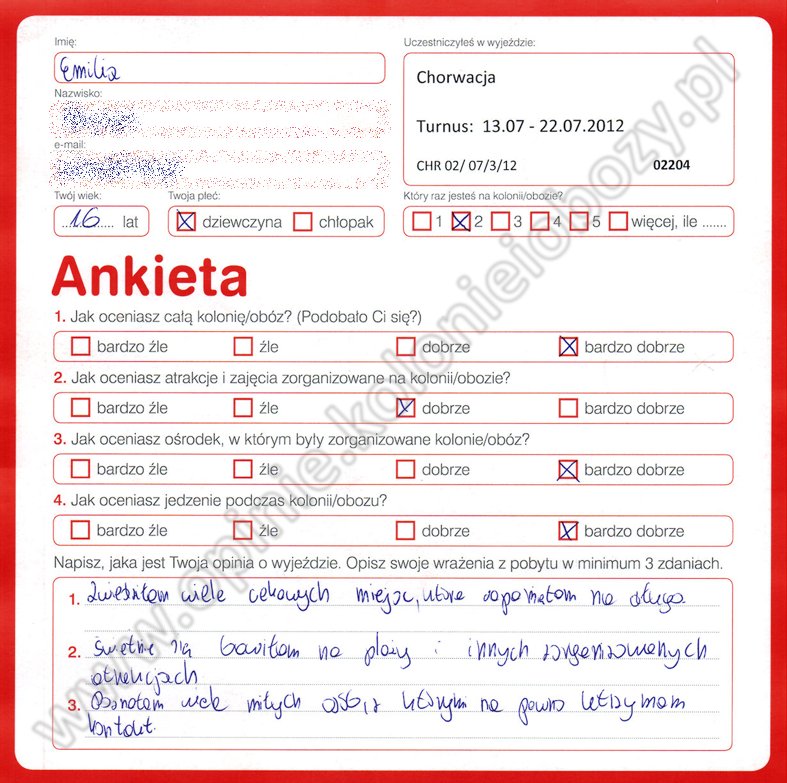 Imię:
Emilia
Nazwisko:
e-mail:
Twój wiek:
16 lat
Twoja płeć:
dziewczyna chłopak
Uczestniczyłeś w wyjeździe:
Chorwacja
Turnus: 13.07 - 22.07.2012
CHR 02/ 07/3/12 02204
Który raz jesteś na kolonii/obozie?
1 2 3 4 5 więcej, ile .......
Ankieta
1. Jak oceniasz całą kolonię/obóz? (Podobało Ci się?)
bardzo źle źle dobrze bardzo dobrze
2. Jak oceniasz atrakcje i zajęcia zorganizowane na kolonii/obozie?
bardzo źle źle dobrze bardzo dobrze
3. Jak oceniasz ośrodek, w którym były zorganizowane kolonie/obóz?
bardzo źle źle dobrze bardzo dobrze
4. Jak oceniasz jedzenie podczas kolonii/obozu?
bardzo źle źle dobrze bardzo dobrze
Napisz, jaka jest Twoja opinia o wyjeździe. Opisz swoje wrażenia z pobytu w minimum 3 zdaniach.
1. Zwiedziłam wiele ciekawych miejsc, które zapamiętam na długo
2. Świetnie się bawiłam na plaży i innych zorganizowanych
atrakcjach
3. Poznałam wiele miłych osób, z którymi na pewno utrzymam
kontakt.
www.opinie.kolonieiobozy.pl